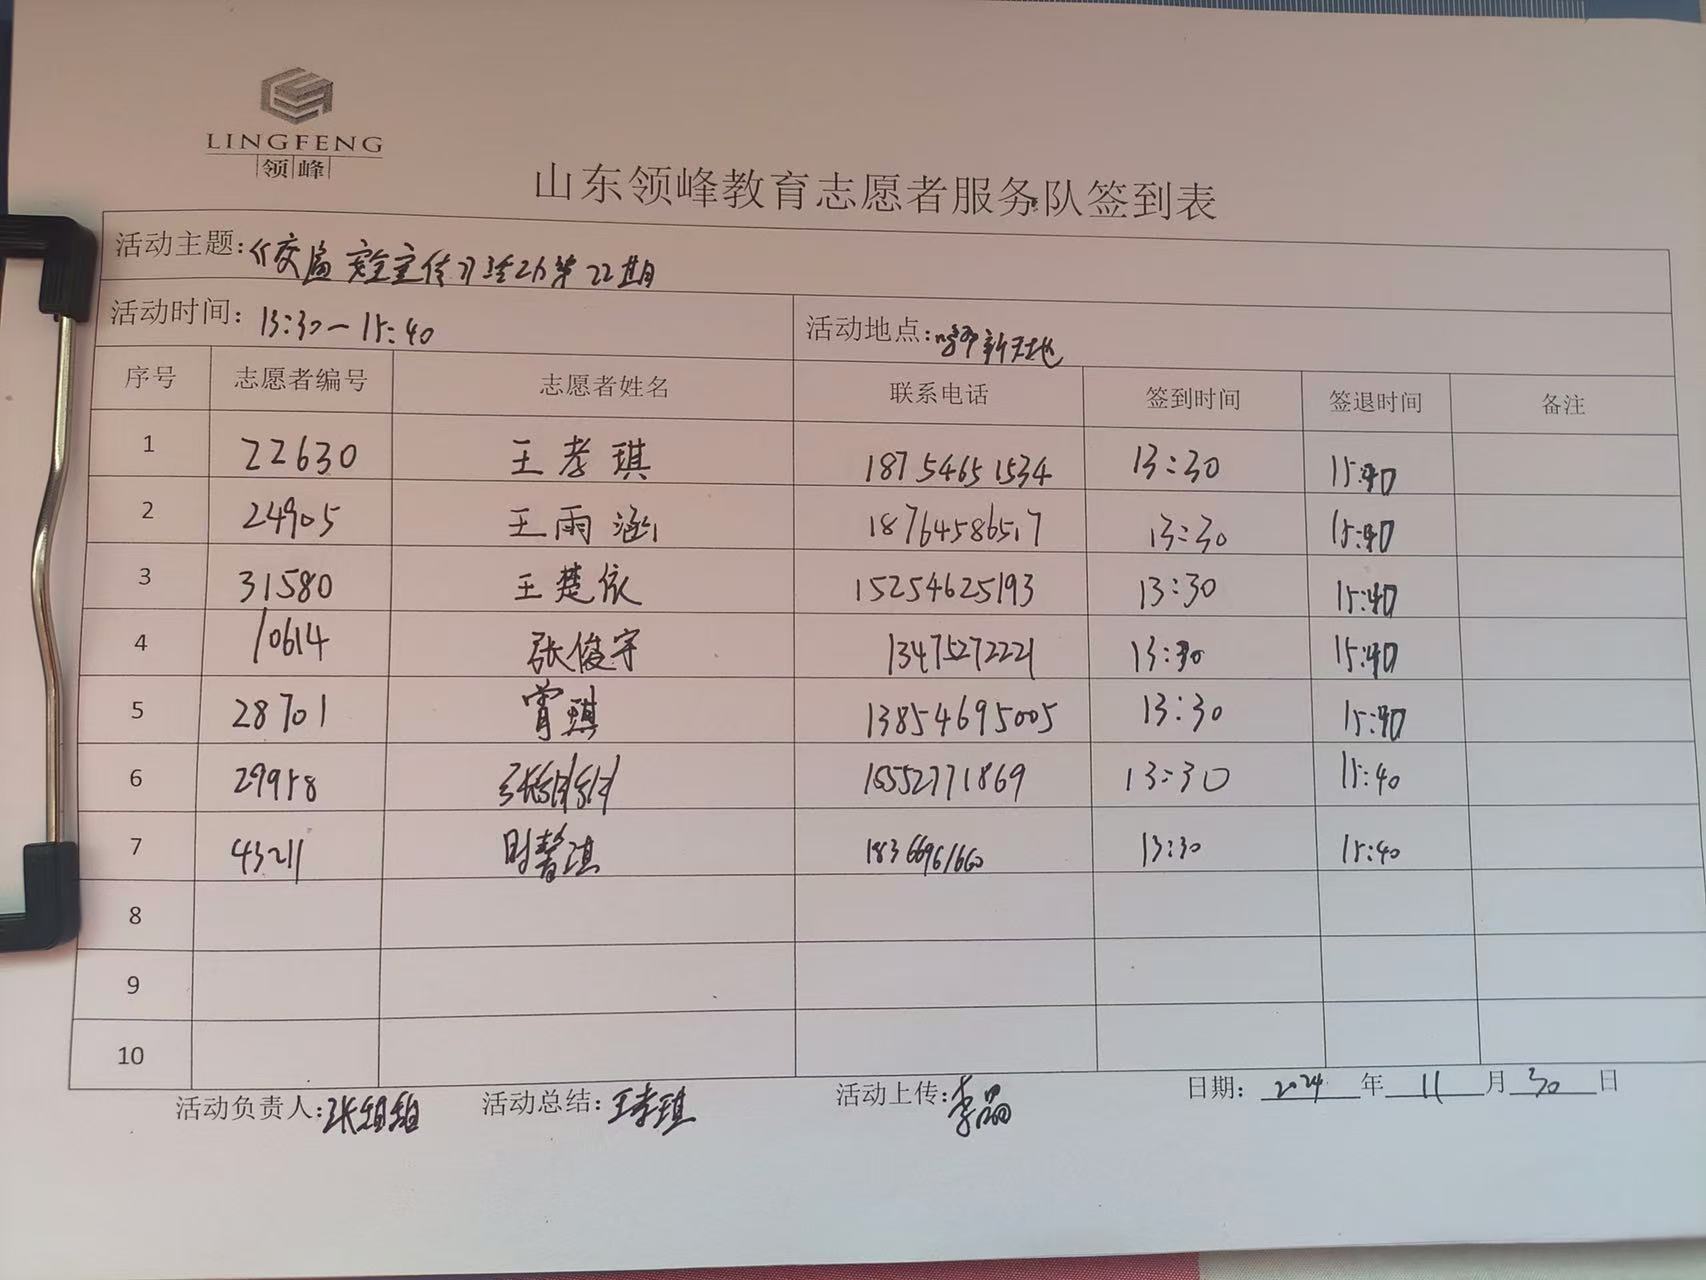 LINGFENG
领峰
山东领峰教育志愿者服务队签到表
活动主题:《交通安全宣传》活动第22期
活动时间: 13:30—15:40 活动地点: 新天地
序号 志愿者编号 志愿者姓名 联系电话 签到时间 签退时间 备注
1 22630 王孝琪 18754651534 13:30 15:40
2 24905 王雨涵 18764586517 13:30 15:40
3 31580 王楚依 15254625193 13:30 15:40
4 10614 张俊宇 13475272221 13:30 15:40
5 28701 琪 13854695005 13:30 15:40
6 29958 张娟娟 15552771869 13:30 15:40
7 43211 时馨淇 18366961660 13:30 15:40
8
9
10
活动负责人:张娟娟 活动总结:王孝琪 活动上传:李晶 日期: 2024 年 11 月 30 日